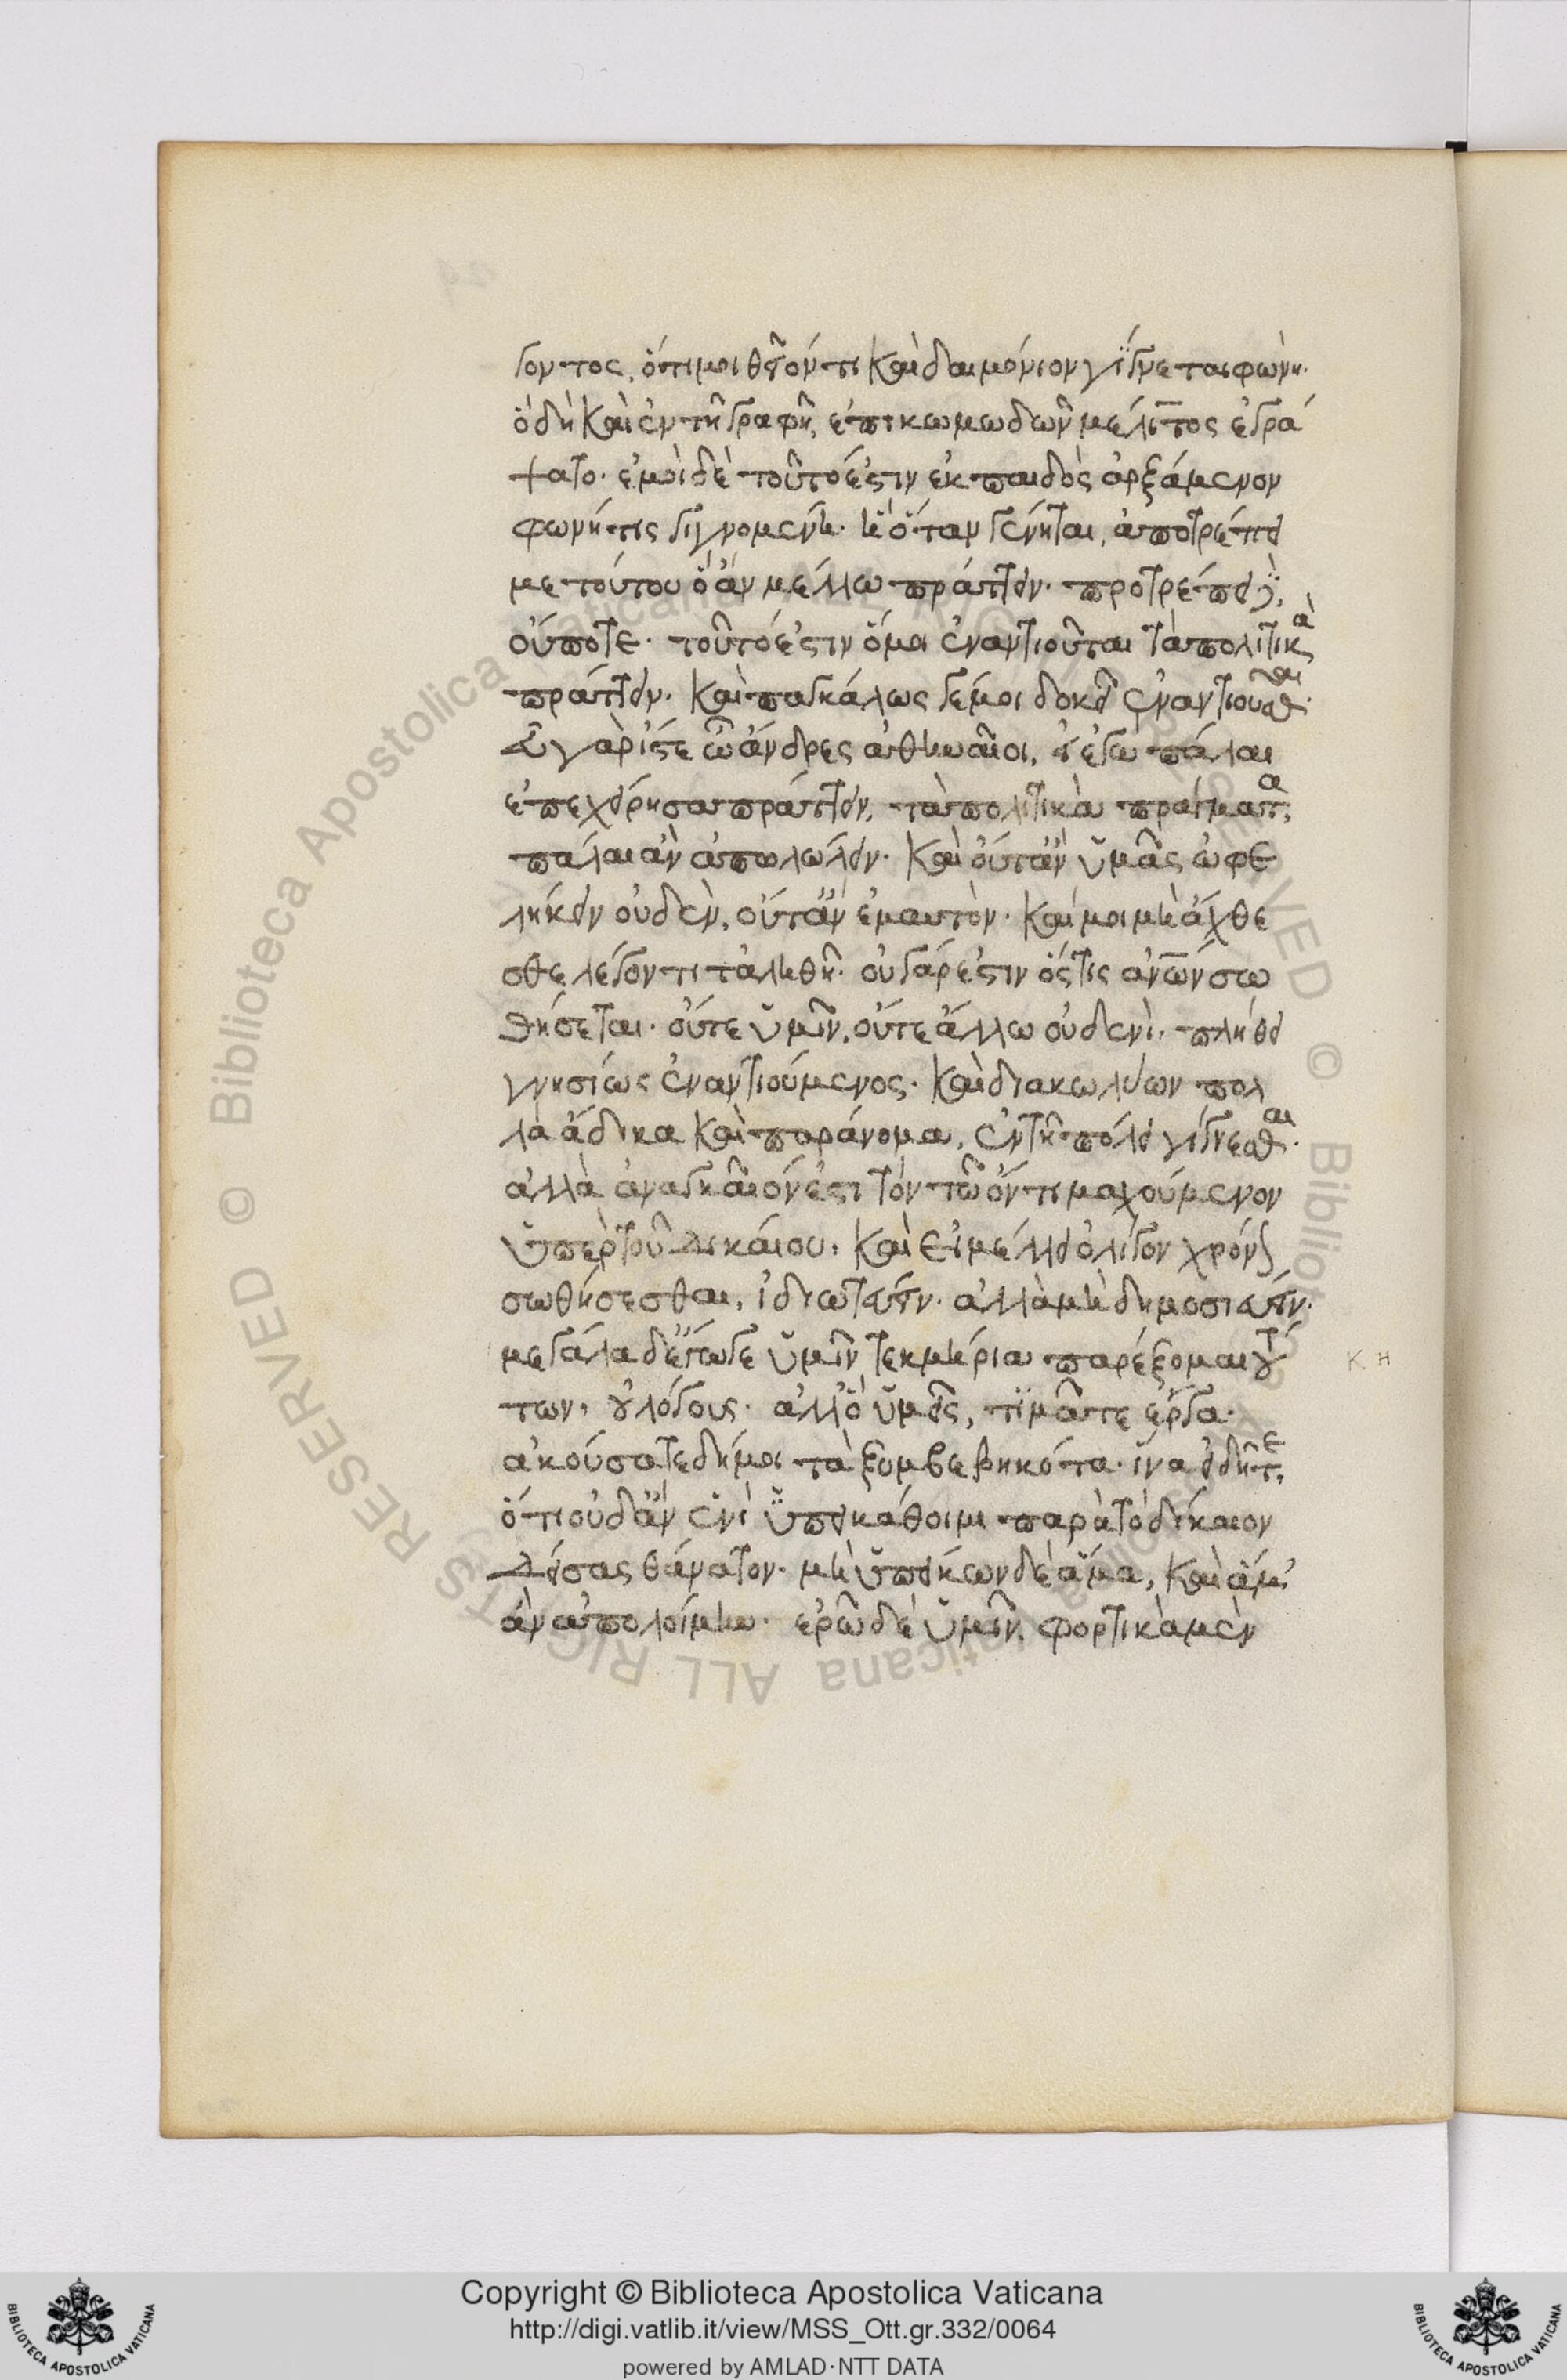 γοντος, ὅτι μοι θεῖόν τι καὶ δαιμόνιον γίγνεται φωνή.
ὃ δὴ καὶ ἐν τῇ γραφῇ, ἐπικωμωδῶν μέλιτος ἐγρά
ψατο. ἐμοὶ δὲ τοῦτό ἐστιν ἐκ παιδὸς ἀρξάμενον
φωνή τις γιγνομένη. ἣ ὅταν γένηται, ἀποτρέπει
με τούτου ὃ ἂν μέλλω πράττειν. προτρέπει δὲ,
οὔποτε. τοῦτό ἐστιν ὅ μοι ἐναντιοῦται τὰ πολιτικὰ
πράττειν. καὶ παγκάλως γέ μοι δοκεῖ ἐναντιοῦσθαι.
εὖ γὰρ ἴστε ὦ ἄνδρες ἀθηναῖοι, εἰ ἐγὼ πάλαι
ἐπεχείρησα πράττειν, τὰ πολιτικὰ πράγματα,
πάλαι ἂν ἀπολώλειν. καὶ οὔτ' ἂν ὑμᾶς ὠφε
λήκειν οὐδὲν, οὔτ' ἂν ἐμαυτόν. καί μοι μὴ ἄχθε
σθε λέγοντι τἀληθῆ. οὐ γάρ ἐστιν ὅστις ἀνθρώπων σω
θήσεται. οὔτε ὑμῖν, οὔτε ἄλλω οὐδενὶ, πλήθει
γνησίως ἐναντιούμενος. καὶ διακωλύων πολ
λὰ ἄδικα καὶ παράνομα, ἐν τῇ πόλει γίγνεσθαι.
ἀλλὰ ἀναγκαῖόν ἐστι τὸν τῶ ὄντι μαχούμενον
ὑπὲρ τοῦ δικαίου, καὶ εἰ μέλλει ὀλίγον χρόνον
σωθήσεσθαι, ἰδιωτεύειν. ἀλλὰ μὴ δημοσιεύειν.
μεγάλα δ' ἔγωγε ὑμῖν τεκμήρια παρέξομαι τού
των, οὐ λόγους. ἀλλ' ὃ ὑμεῖς, τιμᾶτε ἔργα.
ἀκούσατε δή μοι τὰ ξυμβεβηκότα. ἵνα εἰδῆτε,
ὅτι οὐδ' ἂν ἑνὶ ὑπεικάθοιμι παρὰ τὸ δίκαιον
δείσας θάνατον. μὴ ὑπείκων δὲ ἅμα, καὶ ἅμ'
ἂν ἀπολοίμην. ἐρῶ δὲ ὑμῖν, φορτικὰ μὲν
κη
Copyright © Biblioteca Apostolica Vaticana
http://digi.vatlib.it/view/MSS_Ott.gr.332/0064
powered by AMLAD·NTT DATA
BIBLIOTECA APOSTOLICA VATICANA
BIBLIOTECA APOSTOLICA VATICANA
© Biblioteca Apostolica Vaticana ALL RIGHTS RESERVED